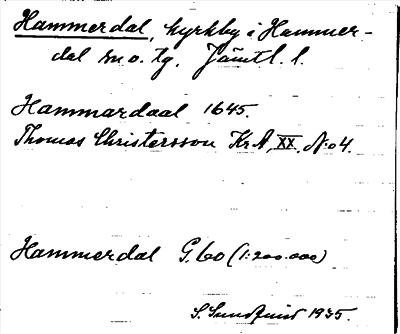 Hammerdal, kyrkby i Hammer-
dal sn o. tg. Jämtl. l.
Hammardaal 1645.
Thomas Christersson Kr A, XX, No 4.
Hammerdal G. 60 (1:200.000)
S. Sundquist 1935.